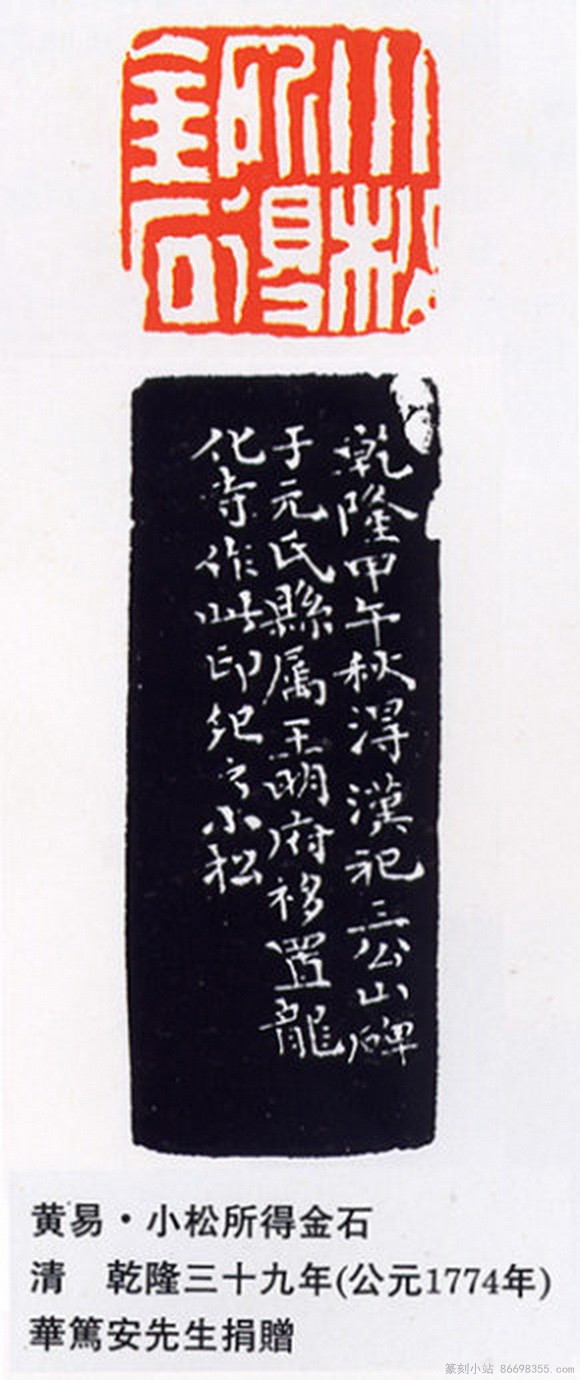 小松
所得
金石
乾隆甲午秋得漢祀三公山碑
于元氏縣属王明府移置龍
化寺作此印紀之小松
黄易·小松所得金石
清 乾隆三十九年(公元1774年)
華篤安先生捐贈
篆刻小站 86698355.com